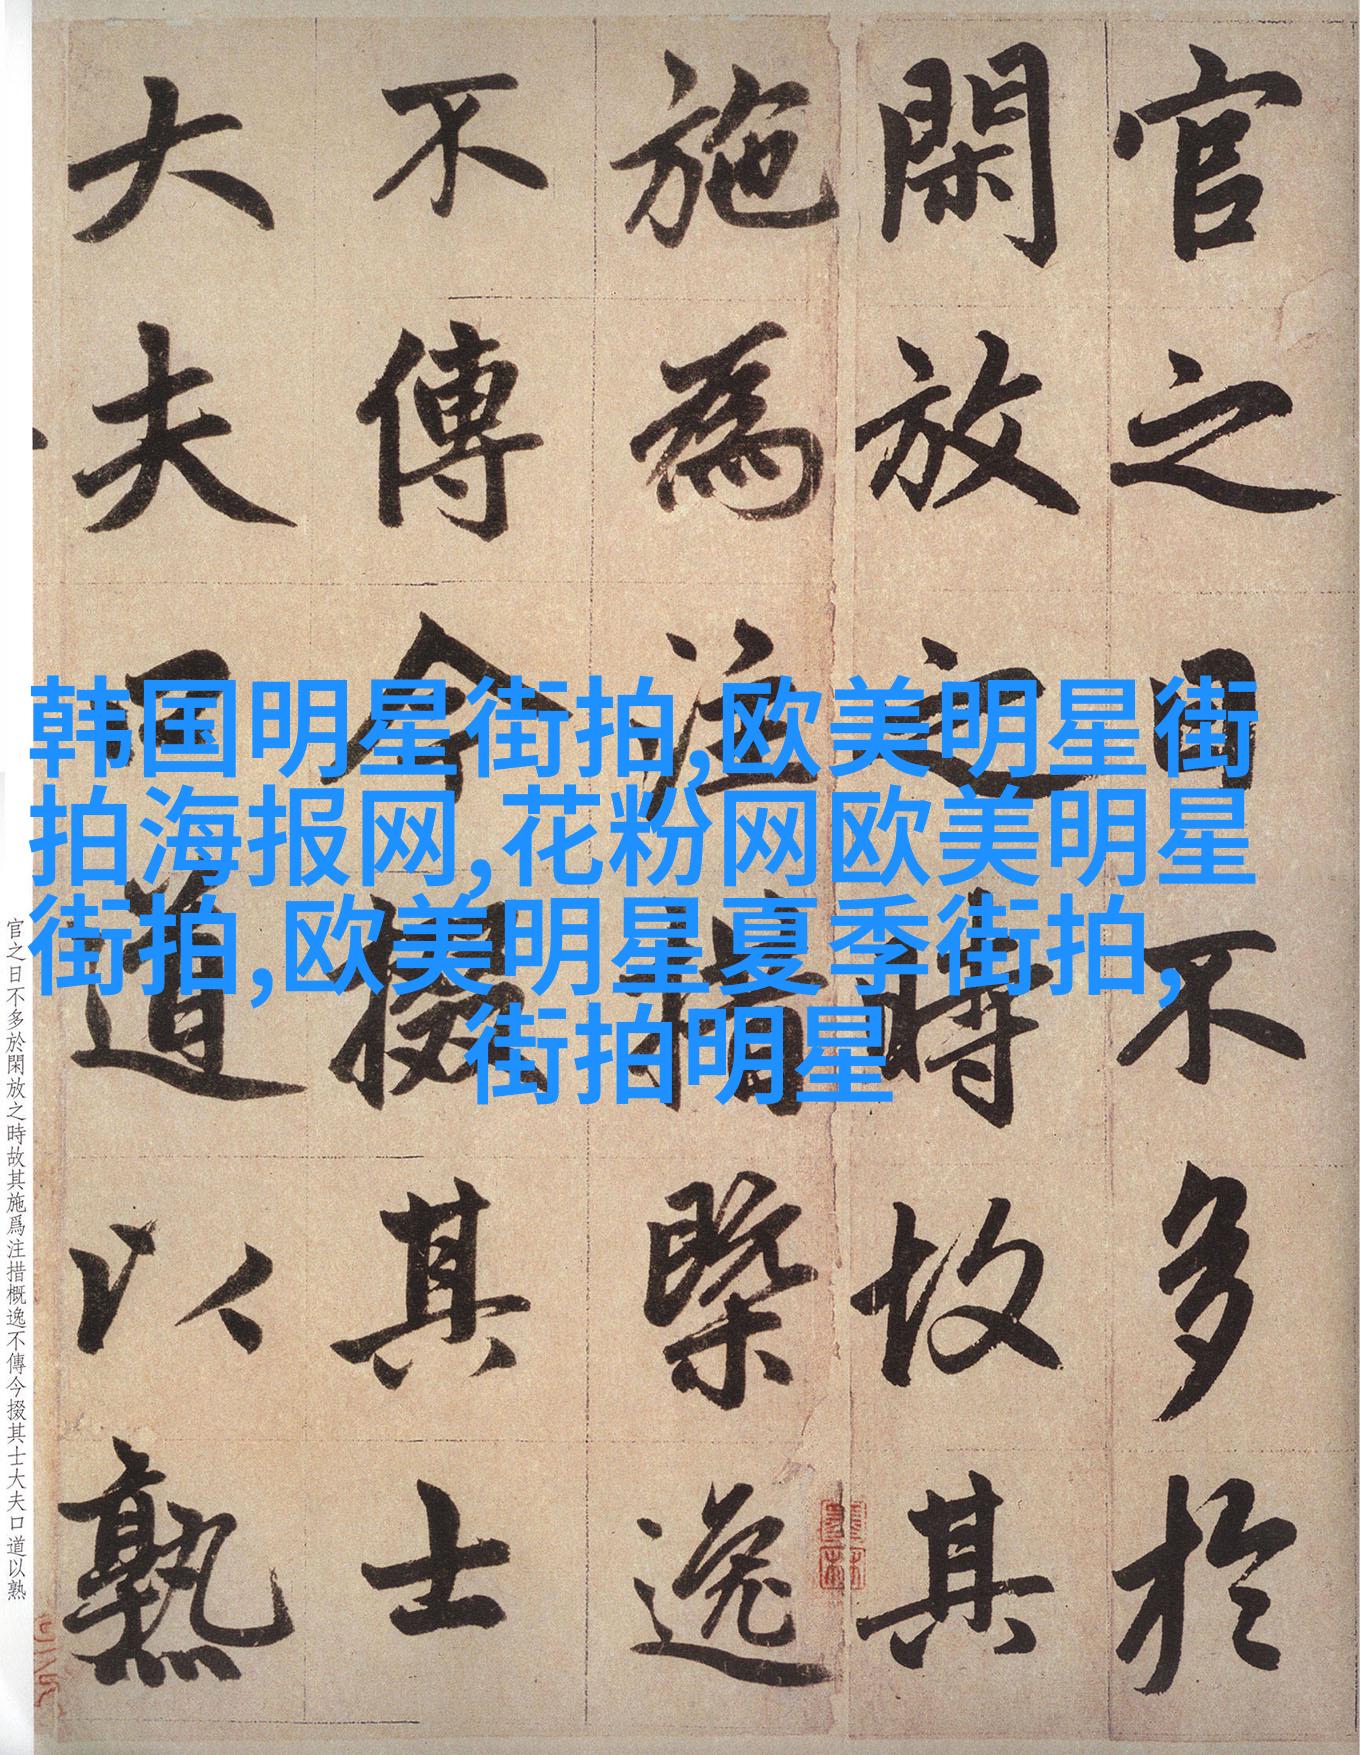 官之日不多於
閑放之時故其
施為注措槩逸
不傳今掇其士
大夫口道以熟
韩国明星街拍,欧美明星街
拍海报网,花粉网欧美明星
街拍,欧美明星夏季街拍,
街拍明星
官之日不多於閑放之時故其施爲注措概逸不傳今掇其士大夫口道以熟